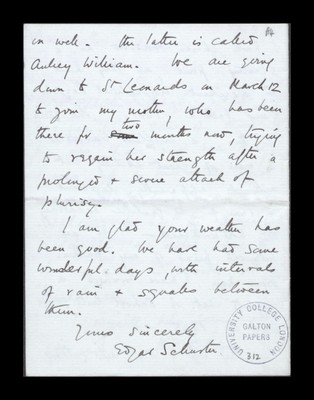 in well. The latter is called
Aubrey William. We are going
down to St Leonards on March 12
to join my mother, who has been
there for two months now, trying
to regain her strength after a
prolonged & severe attack of
pleurisy.
I am glad your weather has
been good. We have had some
wonderful days, with intervals
of rain & squalls between
them.
Yours sincerely
Edgar Schuster
UNIVERSITY COLLEGE LONDON
GALTON
PAPERS
312